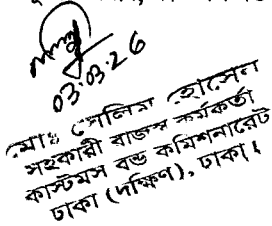 03.03.26
মোঃ সেলিম হোসেন
সহকারী রাজস্ব কর্মকর্তা
কাস্টমস বন্ড কমিশনারেট
ঢাকা (দক্ষিণ), ঢাকা।